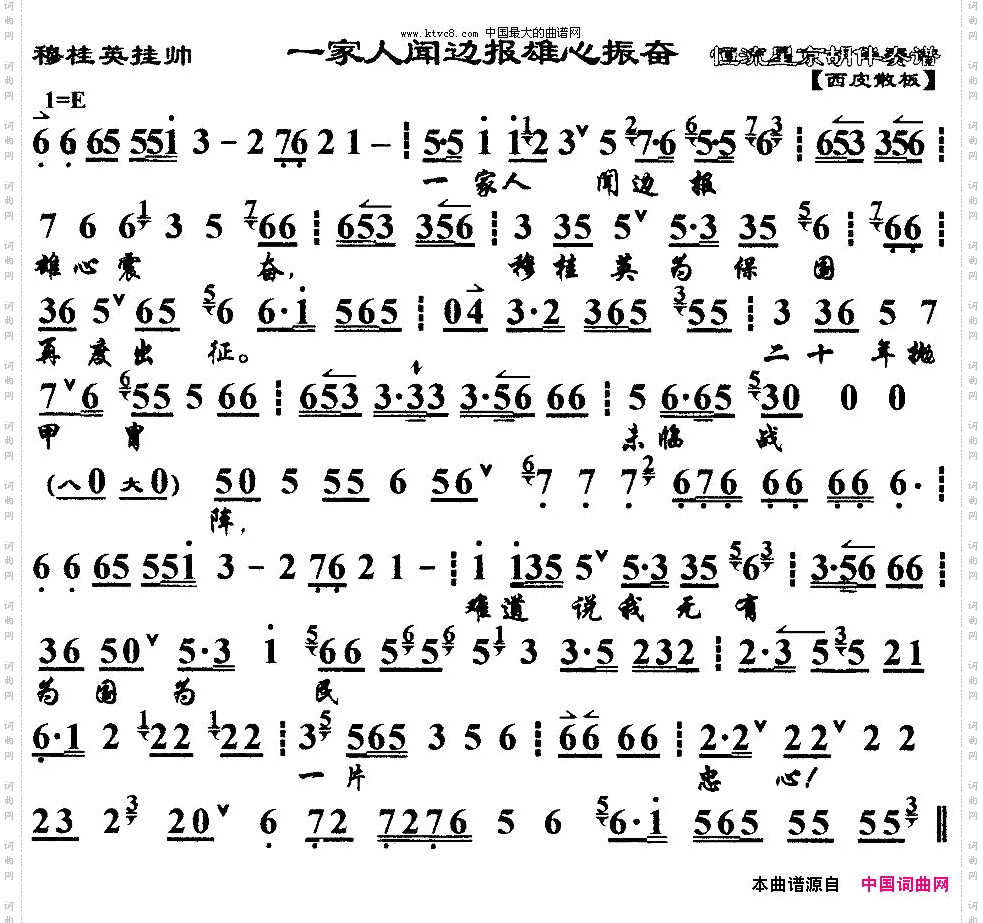 www.ktvc8.com 中国最大的曲谱网
穆桂英挂帅 一家人闻边报雄心振奋 恒流星京胡伴奏谱
【西皮散板】
1=E
6 6 65 551 3 - 2 76 2 1 - 5·5 1 1 12 3 5 2 7·6 6 5·5 7 6 3 653 356
一 家人 闻 边 报
7 6 6 1 3 5 7 66 653 356 3 35 5 5·3 35 5 6 7 66
雄 心 震 奋, 穆 桂 英 为 保 国
36 5 65 5 6 6·1 565 04 3·2 365 3 55 3 36 5 7
再 度 出 征。 二 十 年 抛
7 6 6 55 5 66 653 3·33 3·56 66 5 6·65 5 30 0 0
甲 胄 未 临 战
(八0 大0) 50 5 55 6 56 6 7 7 7 2 676 66 66 6·
阵,
6 6 65 551 3 - 2 76 2 1 - 1 135 5 5·3 35 5 6 3 3·56 66
难 道 说 我 无 有
36 50 5·3 1 5 66 5 6 5 6 5 1 3 3·5 232 2·3 5 3 5 21
为 国 为 民
6·1 2 1 22 1 22 3 5 565 3 5 6 66 66 2·2 22 2 2
一 片 忠 心!
23 2 3 20 6 72 7276 5 6 5 6·1 565 55 55 3
本曲谱源自 中国词曲网